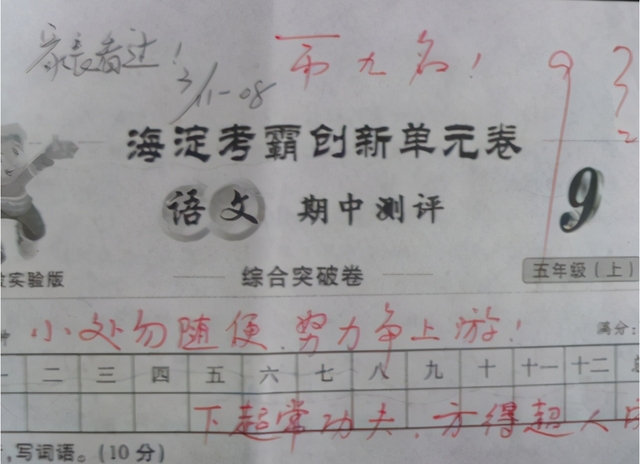 家长看过！ 第九名！
3/11-08
海淀考霸创新单元卷
语文 期中测评 9
实验版 综合突破卷 五年级（上）
钟 小处勿随便，努力争上游！ 满分：
一 二 三 四 五 六 七 八 九 十 十一 十二
下超常功夫，方得超人
，写词语。（10 分）